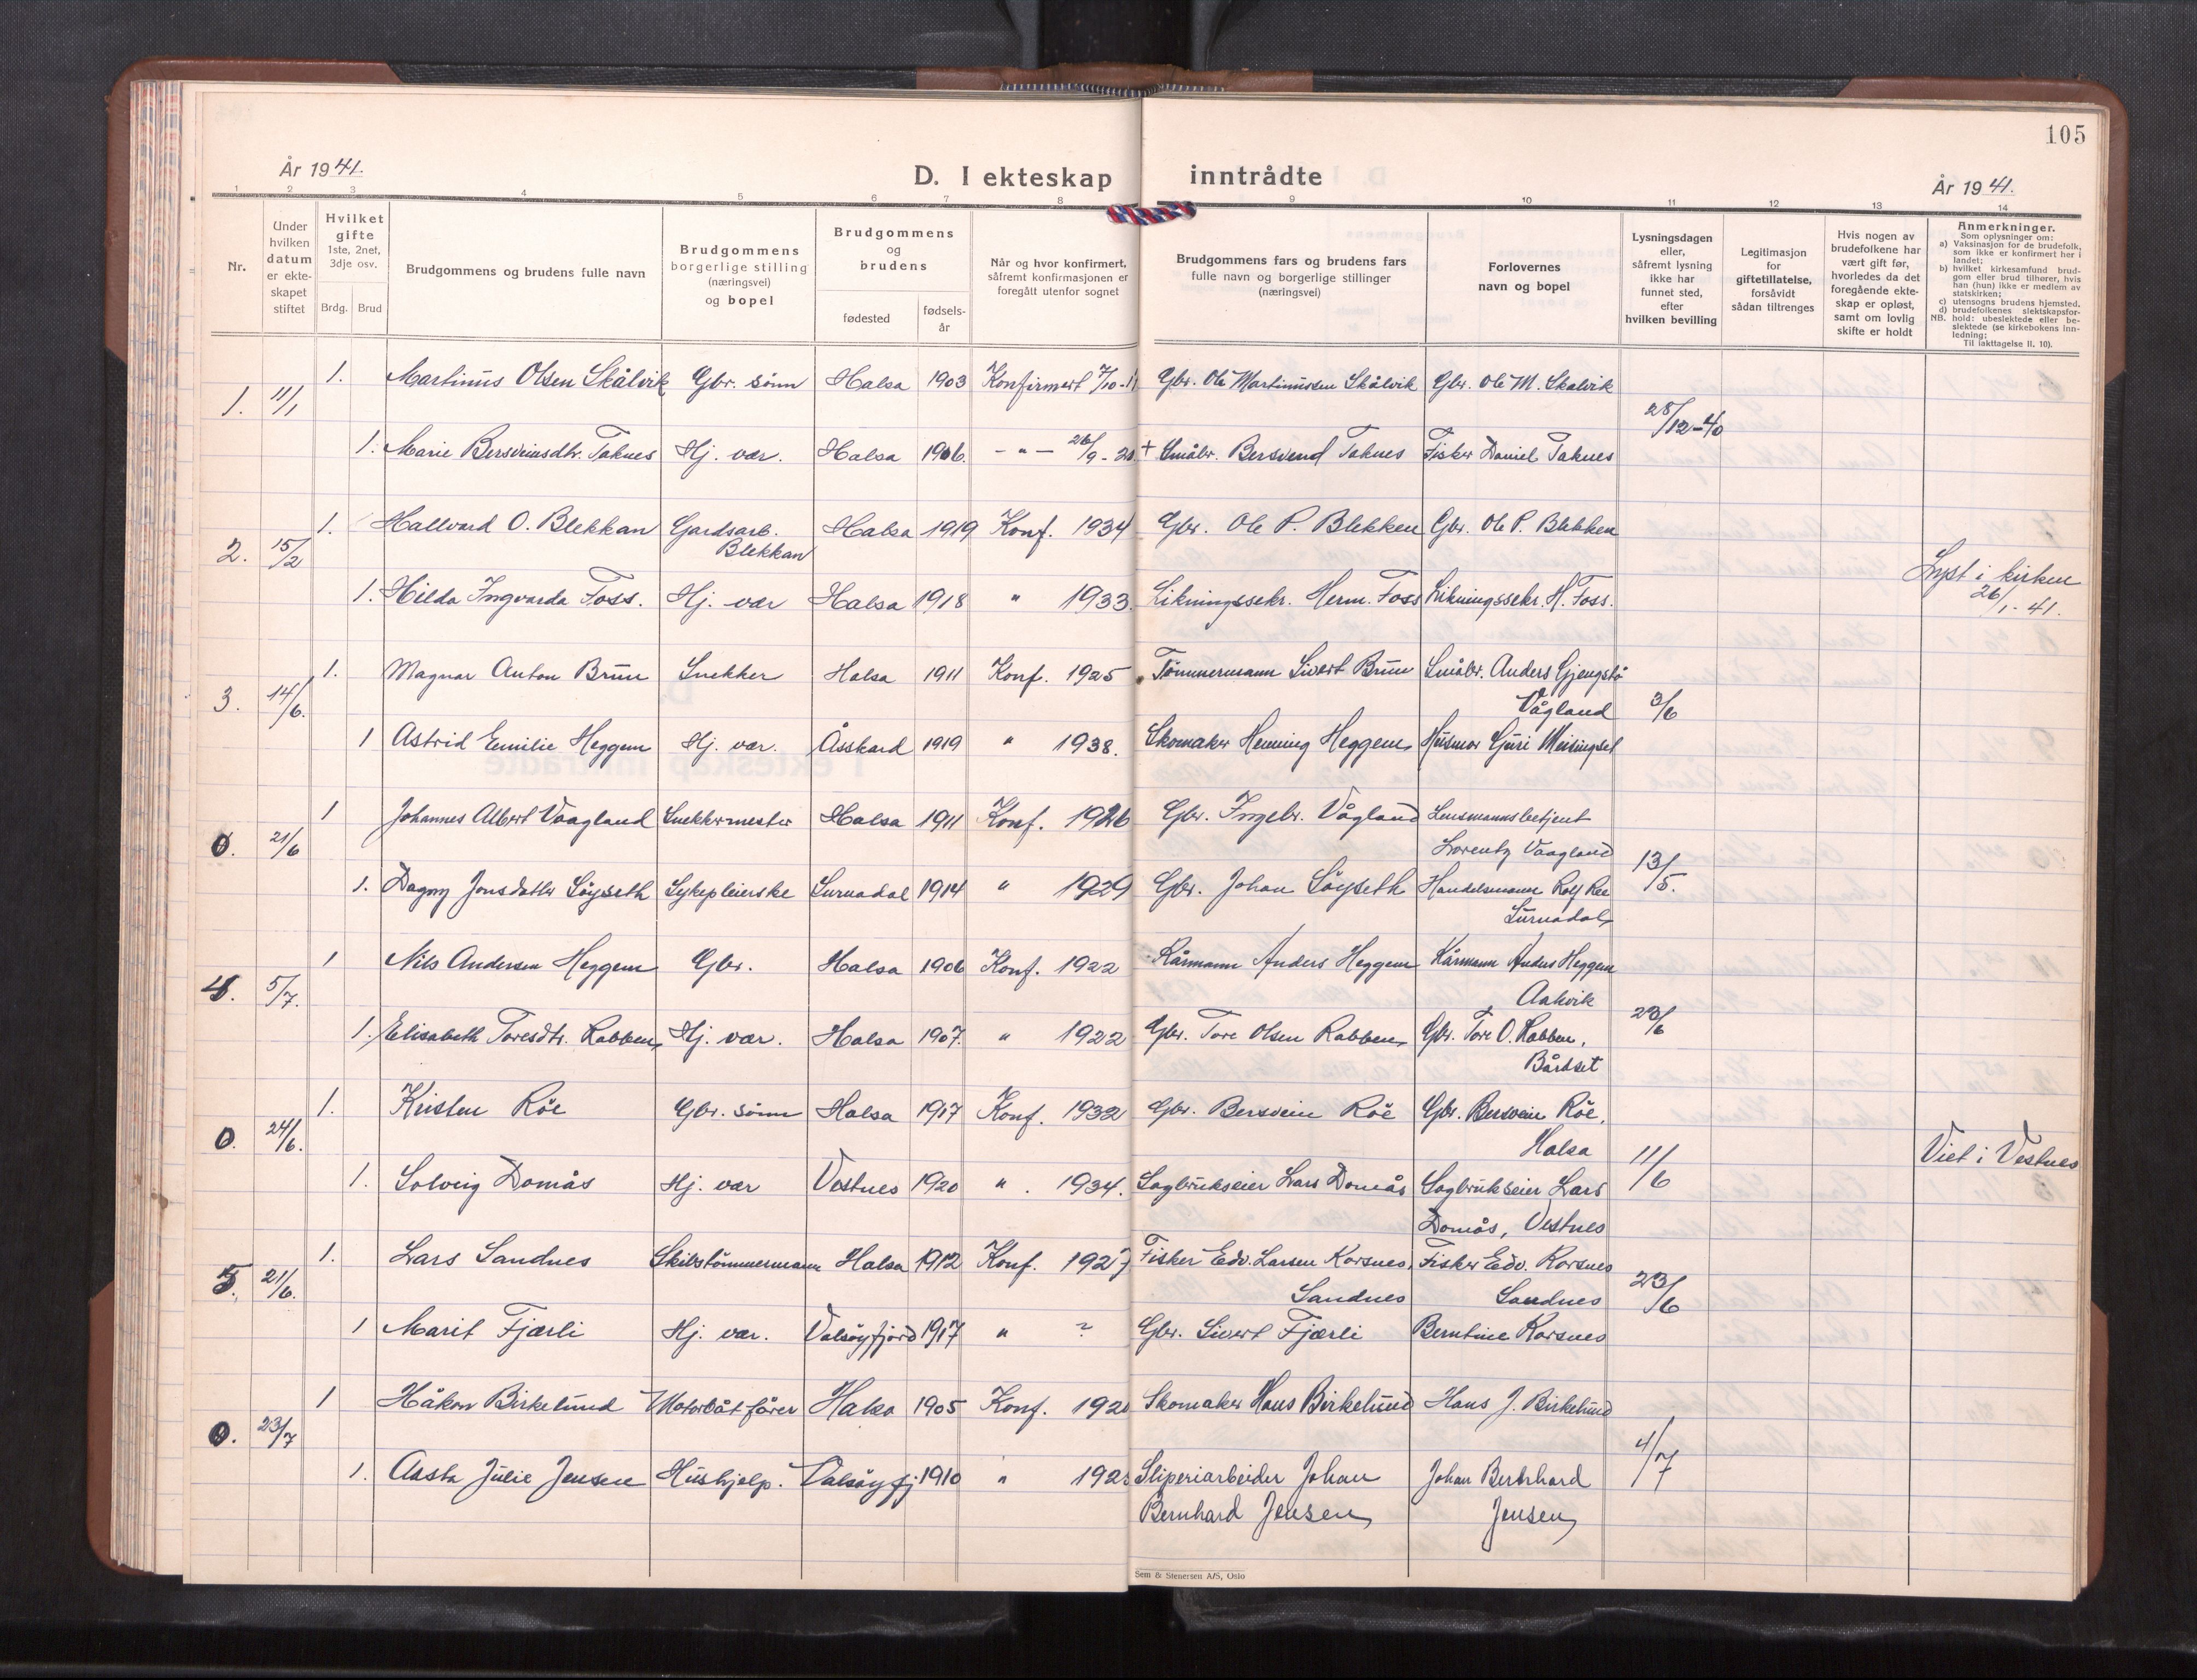 105
År 1941.
D. I ekteskap inntrådte
År 1941.
1 2 3 4 5 6 7 8 9 10 11 12 13 14
Nr.
Under hvilken datum er ekteskapet stiftet
Hvilket gifte
1ste, 2net, 3dje osv.
Brdg. Brud
Brudgommens og brudens fulle navn
Brudgommens borgerlige stilling (næringsvei) og bopel
Brudgommens og brudens
fødested
fødselsår
Når og hvor konfirmert, såfremt konfirmasjonen er foregått utenfor sognet
Brudgommens fars og brudens fars fulle navn og borgerlige stillinger (næringsvei)
Forlovernes navn og bopel
Lysningsdagen eller, såfremt lysning ikke har funnet sted, efter hvilken bevilling
Legitimasjon for giftetillatelse, forsåvidt sådan tiltrenges
Hvis nogen av brudefolkene har vært gift før, hvorledes da det foregående ekteskap er opløst, samt om lovlig skifte er holdt
Anmerkninger.
Som oplysninger om:
a) Vaksinasjon for de brudefolk, som ikke er konfirmert her i landet;
b) hvilket kirkesamfund brudgom eller brud tilhører, hvis han (hun) ikke er medlem av statskirken;
c) utensogns brudens hjemsted.
d) brudefolkenes slektskapsforhold: ubeslektede eller beslektede (se kirkebokens innledning;
NB. Til iakttagelse II. 10).
1. Martinus Olsen Skålvik Gbr. sønn Halsa 1903 Konfirmert 7/10-1 Gbr. Ole Martinussen Skålvik Gbr. Ole M. Skalvik
1. 11/1 28/12-40
1. Marie Bersveinsdtr. Taknes Hj. vær. Halsa 1906. - " - 26/9-20 + Småbr. Bersvend Taknes Fisker Daniel Taknes
1. Hallvard O. Blekkan Gardsarb. Halsa 1919 Konf. 1934 Gbr. Ole P. Blekken Gbr. Ole P. Blekken
2. 15/2 Blekkan
1. Hilda Ingvarda Foss. Hj. vær Halsa 1918 " 1933. Likningssekr. Herm. Foss Likningssekr. H. Foss. Lyst i kirken
26/1-41.
1. Magnar Anton Brun Snekker Halsa 1911 Konf. 1925 Tømmermann Sivert Brun Småbr. Anders Gjengstø
3. 14/6. Vågland 3/6
1 Astrid Emilie Heggem Hj. vær. Åsskard 1919 " 1938. Skomaker Henning Heggem Husmor Guri Meisingset
1 Johannes Albert Vaagland Snekkermester Halsa 1911 Konf. 1926 Gbr. Ingebr. Vågland Lensmannsbetjent
0. 21/6 Lorentz Vaagland 13/5.
1. Dagny Jonsdatter Søyseth Sykepleierske Surnadal 1914 " 1929 Gbr. Johan Søyseth Handelsmann Rolf
Surnadal
1 Nils Andersen Heggem Gbr. Halsa 1906 Konf. 1922 Kårmann Anders Heggem Kårmann Anders Heggem
4. 5/7. Aakvik
1. Elisabeth Toresdtr. Rabben Hj. vær. Halsa 1907. " 1922 Gbr. Tore Olsen Rabben Gbr. Tore O. Rabben,
Bårdset
1. Kristen Röe Gbr. sønn Halsa 1917 Konf. 1932 Gbr. Bersvein Röe Gbr. Bersvein Röe,
0. 24/6. Halsa 11/6 Viet i Vestnes
1. Solveig Domås Hj. vær Vestnes 1920 " . 1934. Sagbrukseier Lars Domås Sagbrukseier Lars
Domås, Vestnes
1. Lars Sandnes Skibstømmermann Halsa 1912 Konf. 1927 Fisker Edv. Larsen Korsnes, Fisker Edv. Korsnes
5. 21/6. Sandnes Sandnes 23/6
1 Marit Fjærli Hj. vær. Valsøyfjord 1917 " ? Gbr. Sivert Fjærli Berntine Korsnes
1 Håkon Birkelund Motorbåtfører Halsa 1905 Konf. 1920 Skomaker Hans Birkelund Hans J. Birkelund
0. 23/7 4/7
1. Aasta Julie Jensen Hushjelp. Valsøyfj 1910 " 1925 Sliperiarbeider Johan Johan Bernhard
Bernhard Jensen Jensen
Sem & Stenersen A/S, Oslo